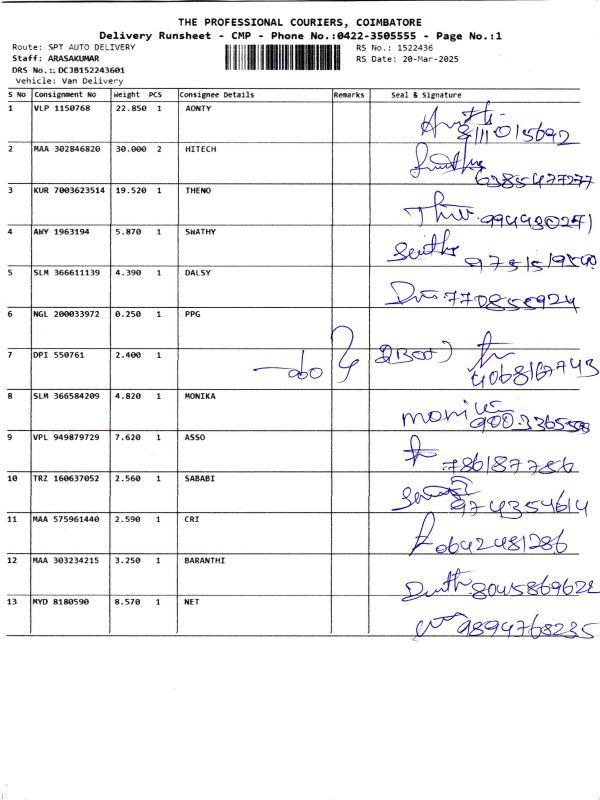 THE PROFESSIONAL COURIERS, COIMBATORE
Delivery Runsheet - CMP - Phone No.:0422-3505555 - Page No.:1
Route: SPT AUTO DELIVERY RS No.: 1522436
Staff: ARASAKUMAR RS Date: 20-Mar-2025
DRS No.: DCJB152243601
Vehicle: Van Delivery
S No Consignment No Weight PCS Consignee Details Remarks Seal & Signature
1 VLP 1150768 22.850 1 AONTY
2 MAA 302846820 30.000 2 HITECH
6385477277
3 KUR 7003623514 19.520 1 THENO
994430271
4 AWY 1963194 5.870 1 SWATHY
5 SLM 366611139 4.390 1 DALSY
770855924
6 NGL 200033972 0.250 1 PPG
7 DPI 550761 2.400 1
8 SLM 366584209 4.820 1 MONIKA
9 VPL 949879729 7.620 1 ASSO
786187786
10 TRZ 160637052 2.560 1 SABABI
974354614
11 MAA 575961440 2.590 1 CRI
12 MAA 303234215 3.250 1 BARANTHI
13 MYD 8180590 8.570 1 NET
9894768235